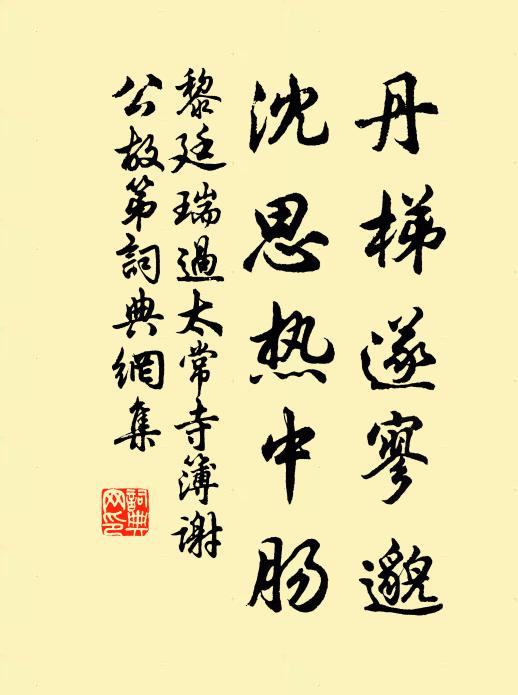 丹梯遂寥邈
沈思热中肠
黎廷瑞過太常寺簿谢
公故第詞典網集
詞典
网印